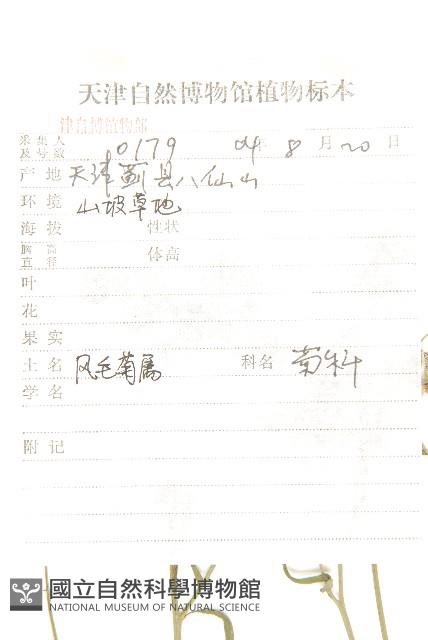 天津自然博物馆植物标本
津自博馆物部
采集人及号数 10179 04年 8 月 20 日
产地 天津蓟县八仙山
环境 山坡草地
海拔 性状
胸高直径 体高
叶
花
果实
土名 风毛菊属 科名 菊科
学名
附记
國立自然科學博物館
NATIONAL MUSEUM OF NATURAL SCIENCE